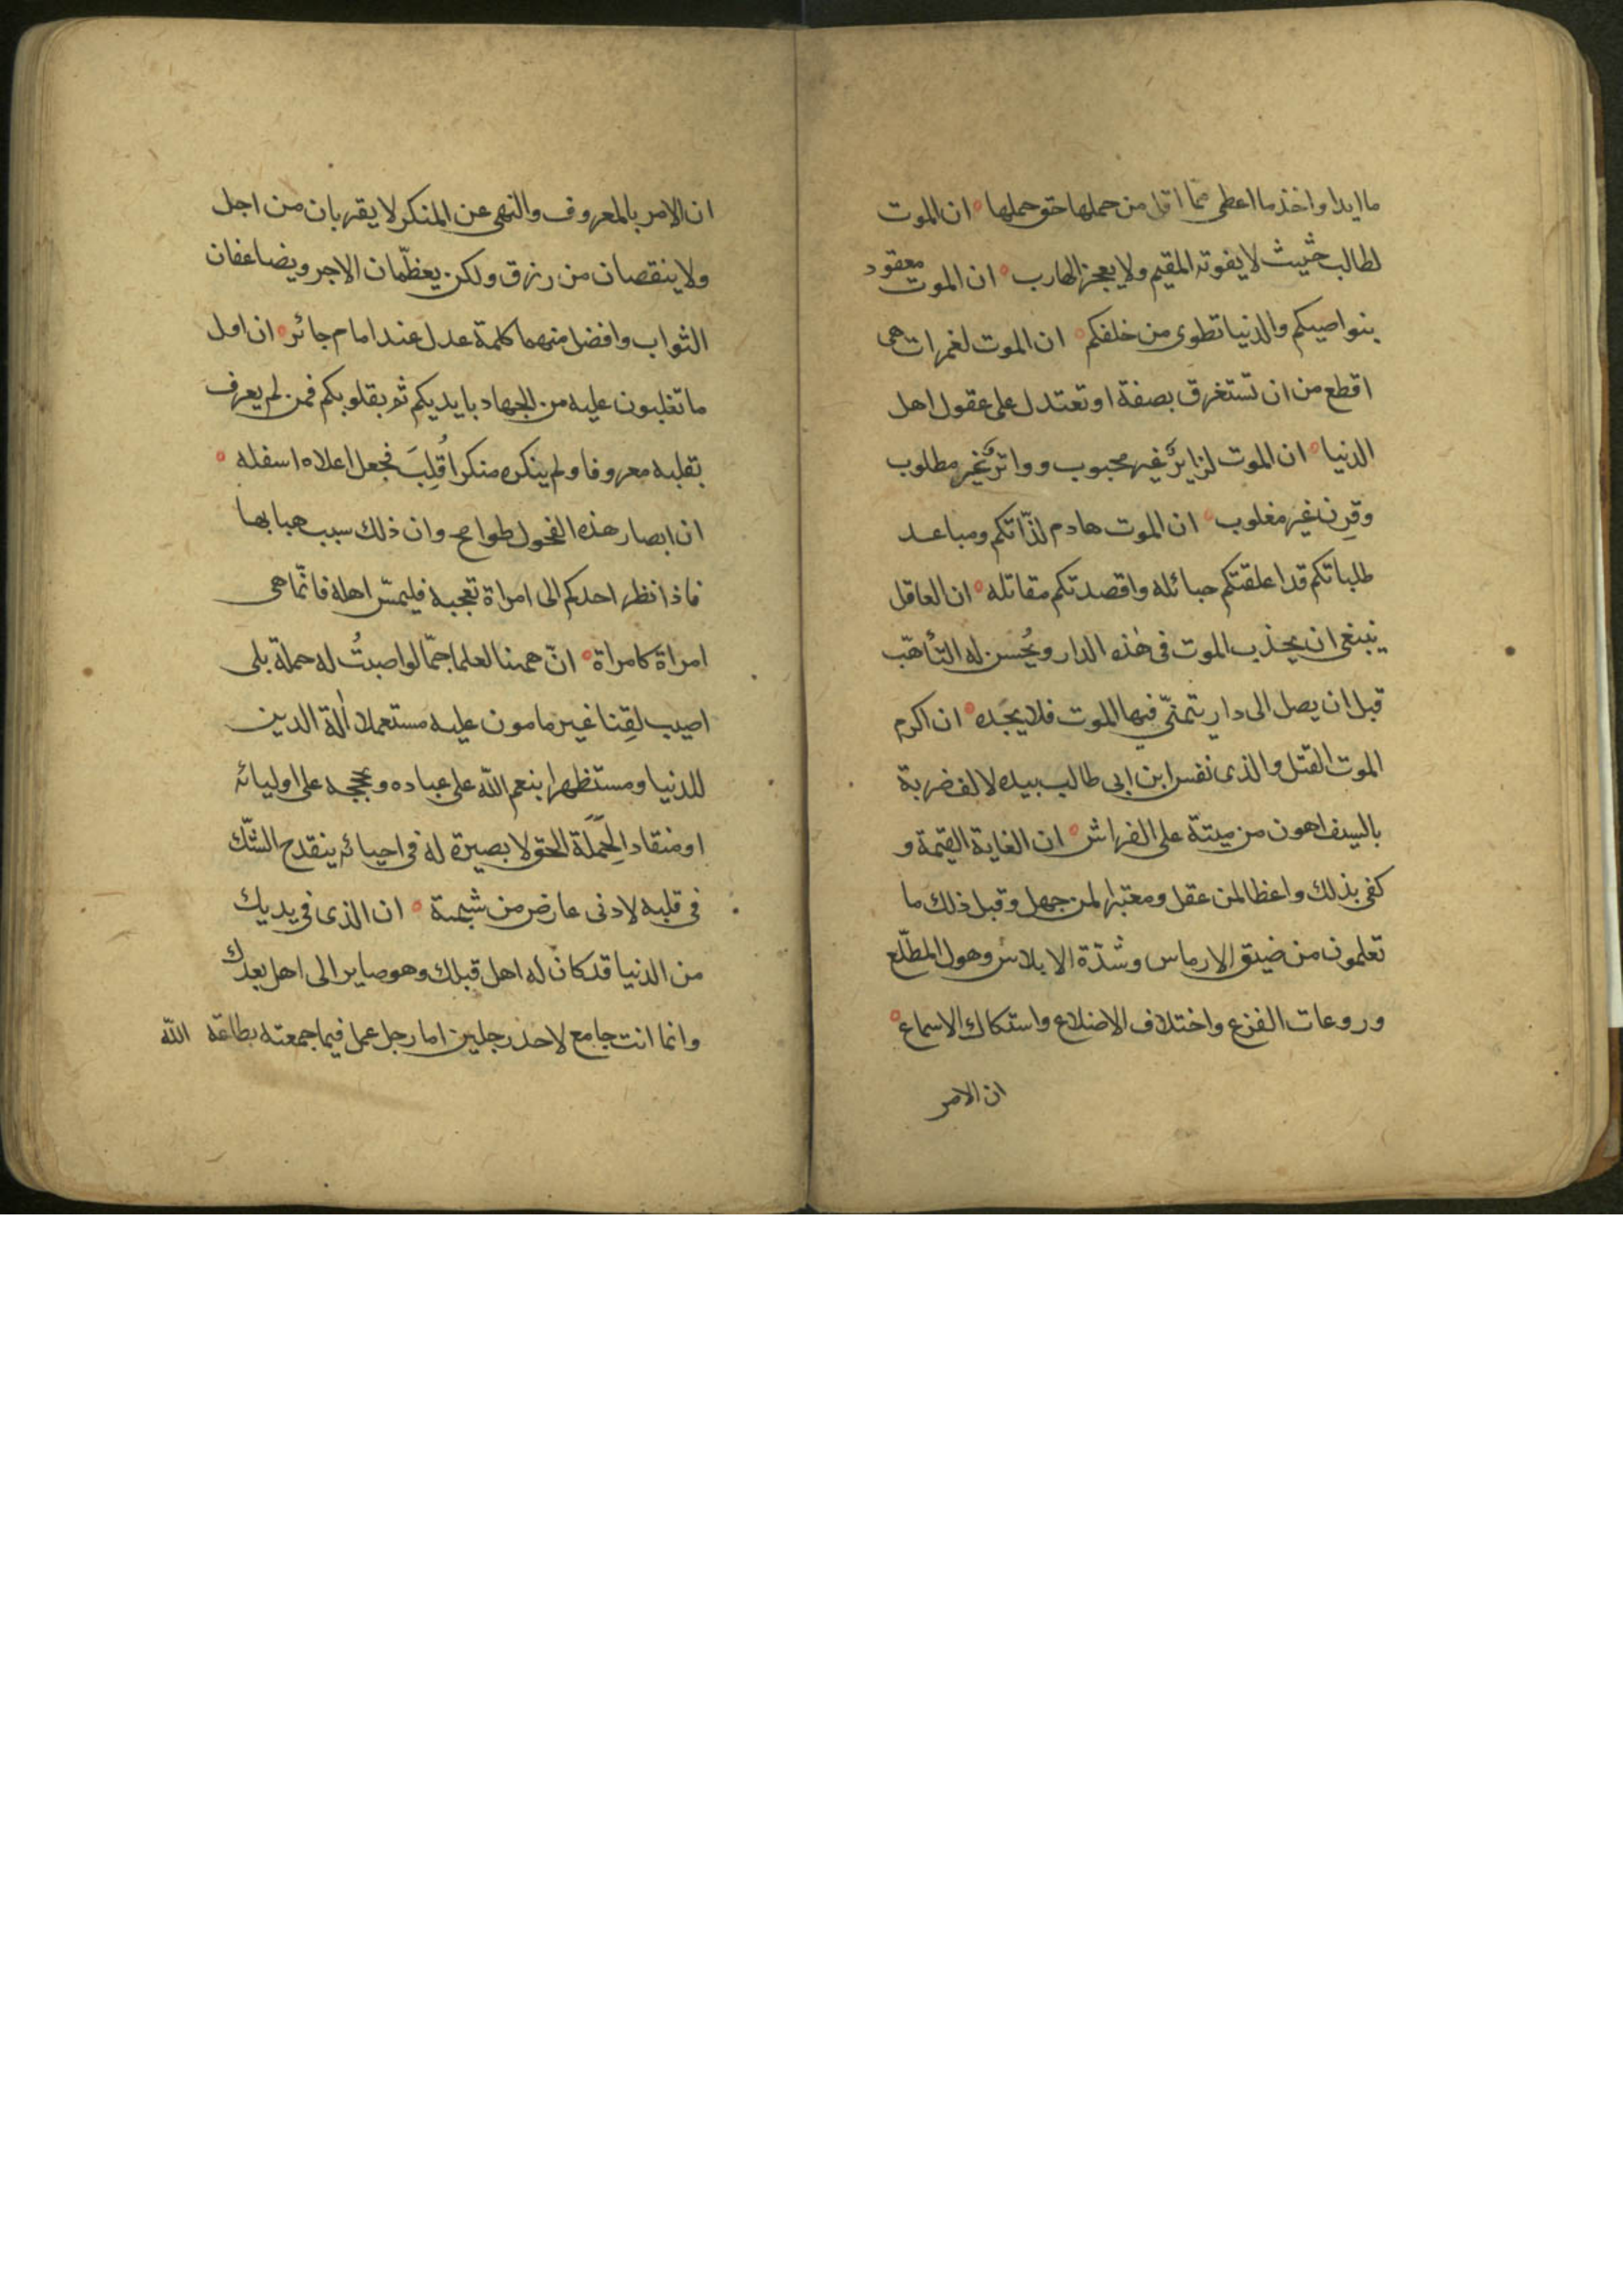 ما ابدا واخذ ما اعطى فما اقل من حملها حق حملها ان الموت
لطالب حثيث لا يفوته المقيم ولا يعجزه الهارب ان الموت معقود
بنواصيكم والدنيا تطوى من خلفكم ان الموت لغمرات هى
اقطع من ان تستغرق بصفة او تعتدل على عقول اهل
الدنيا ان الموت لزاير غير محبوب وواتر غير مطلوب
وقرن غير مغلوب ان الموت هادم لذّاتكم ومباعد
طلباتكم قد اعلقتكم حبائله واقصدتكم مقاتله ان العاقل
ينبغى ان يحذر الموت فى هذه الدار ويُحسن له التأهّب
قبل ان يصل الى دار يتمنّى فيها الموت فلا يجده ان اكرم
الموت القتل والذى نفس ابن ابى طالب بيده لالف ضربة
بالسيف اهون من ميتة على الفراش ان الغاية القيمة و
كفى بذلك واعظا لمن عقل ومعتبرا لمن جهل وقبل ذلك ما
تعلمون من ضيق الارماس وشدّة الابلاس وهول المطّلع
وروعات الفزع واختلاف الاضلاع واستكاك الاسماع
ان الامر
ان الامر بالمعروف والنهى عن المنكر لا يقربان من اجل
ولا ينقصان من رزق ولكن يعظّمان الاجر ويضاعفان
الثواب وافضل منهما كلمة عدل عند امام جائر ان اول
ما تغلبون عليه من الجهاد بايديكم ثم بقلوبكم فمن لم يعرف
بقلبه معروفا ولم ينكره منكرا قُلِبَ فجعل اعلاه اسفله
ان ابصار هذه الفحول طوامح وان ذلك سبب هبابها
فاذا نظر احدكم الى امراة تعجبه فليمسّ اهله فانّما هى
امراة كامراة انّ ههنا لعلما جمّا لو اصبتُ له حملة بلى
اصيب لقِنا غير مامون عليه مستعملا آلة الدين
للدنيا ومستظهرا بنعم الله على عباده وبحججه على اوليائه
او منقادا لحَمَلَة الحق لا بصيرة له فى احيائه ينقدح الشّك
فى قلبه لادنى عارض من شبهة ان الذى فى يديك
من الدنيا قد كان له اهل قبلك وهو صاير الى اهل بعدك
وانما انت جامع لاحد رجلين اما رجل عمل فيما جمعته بطاعة الله